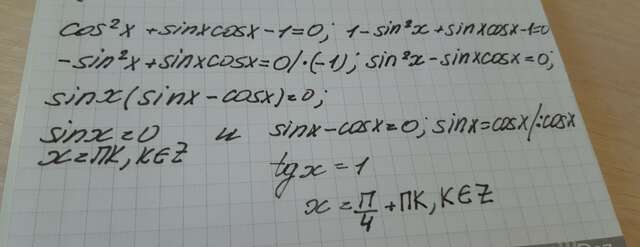 cos²x + sinxcosx - 1 = 0; 1 - sin²x + sinxcosx - 1 = 0
- sin²x + sinxcosx = 0 / · (-1); sin²x - sinxcosx = 0;
sinx (sinx - cosx) = 0;
sinx = 0 и sinx - cosx = 0; sinx = cosx /: cosx
x = Пк, к ∈ Z
tgx = 1
x = П/4 + Пк, к ∈ Z